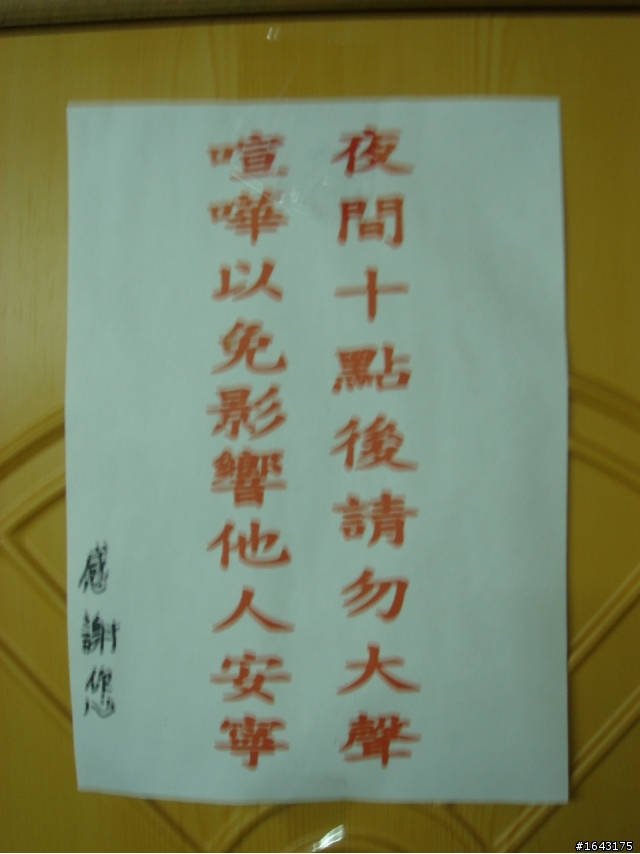 夜間十點後請勿大聲
喧嘩以免影響他人安寧
感謝您
#1643175